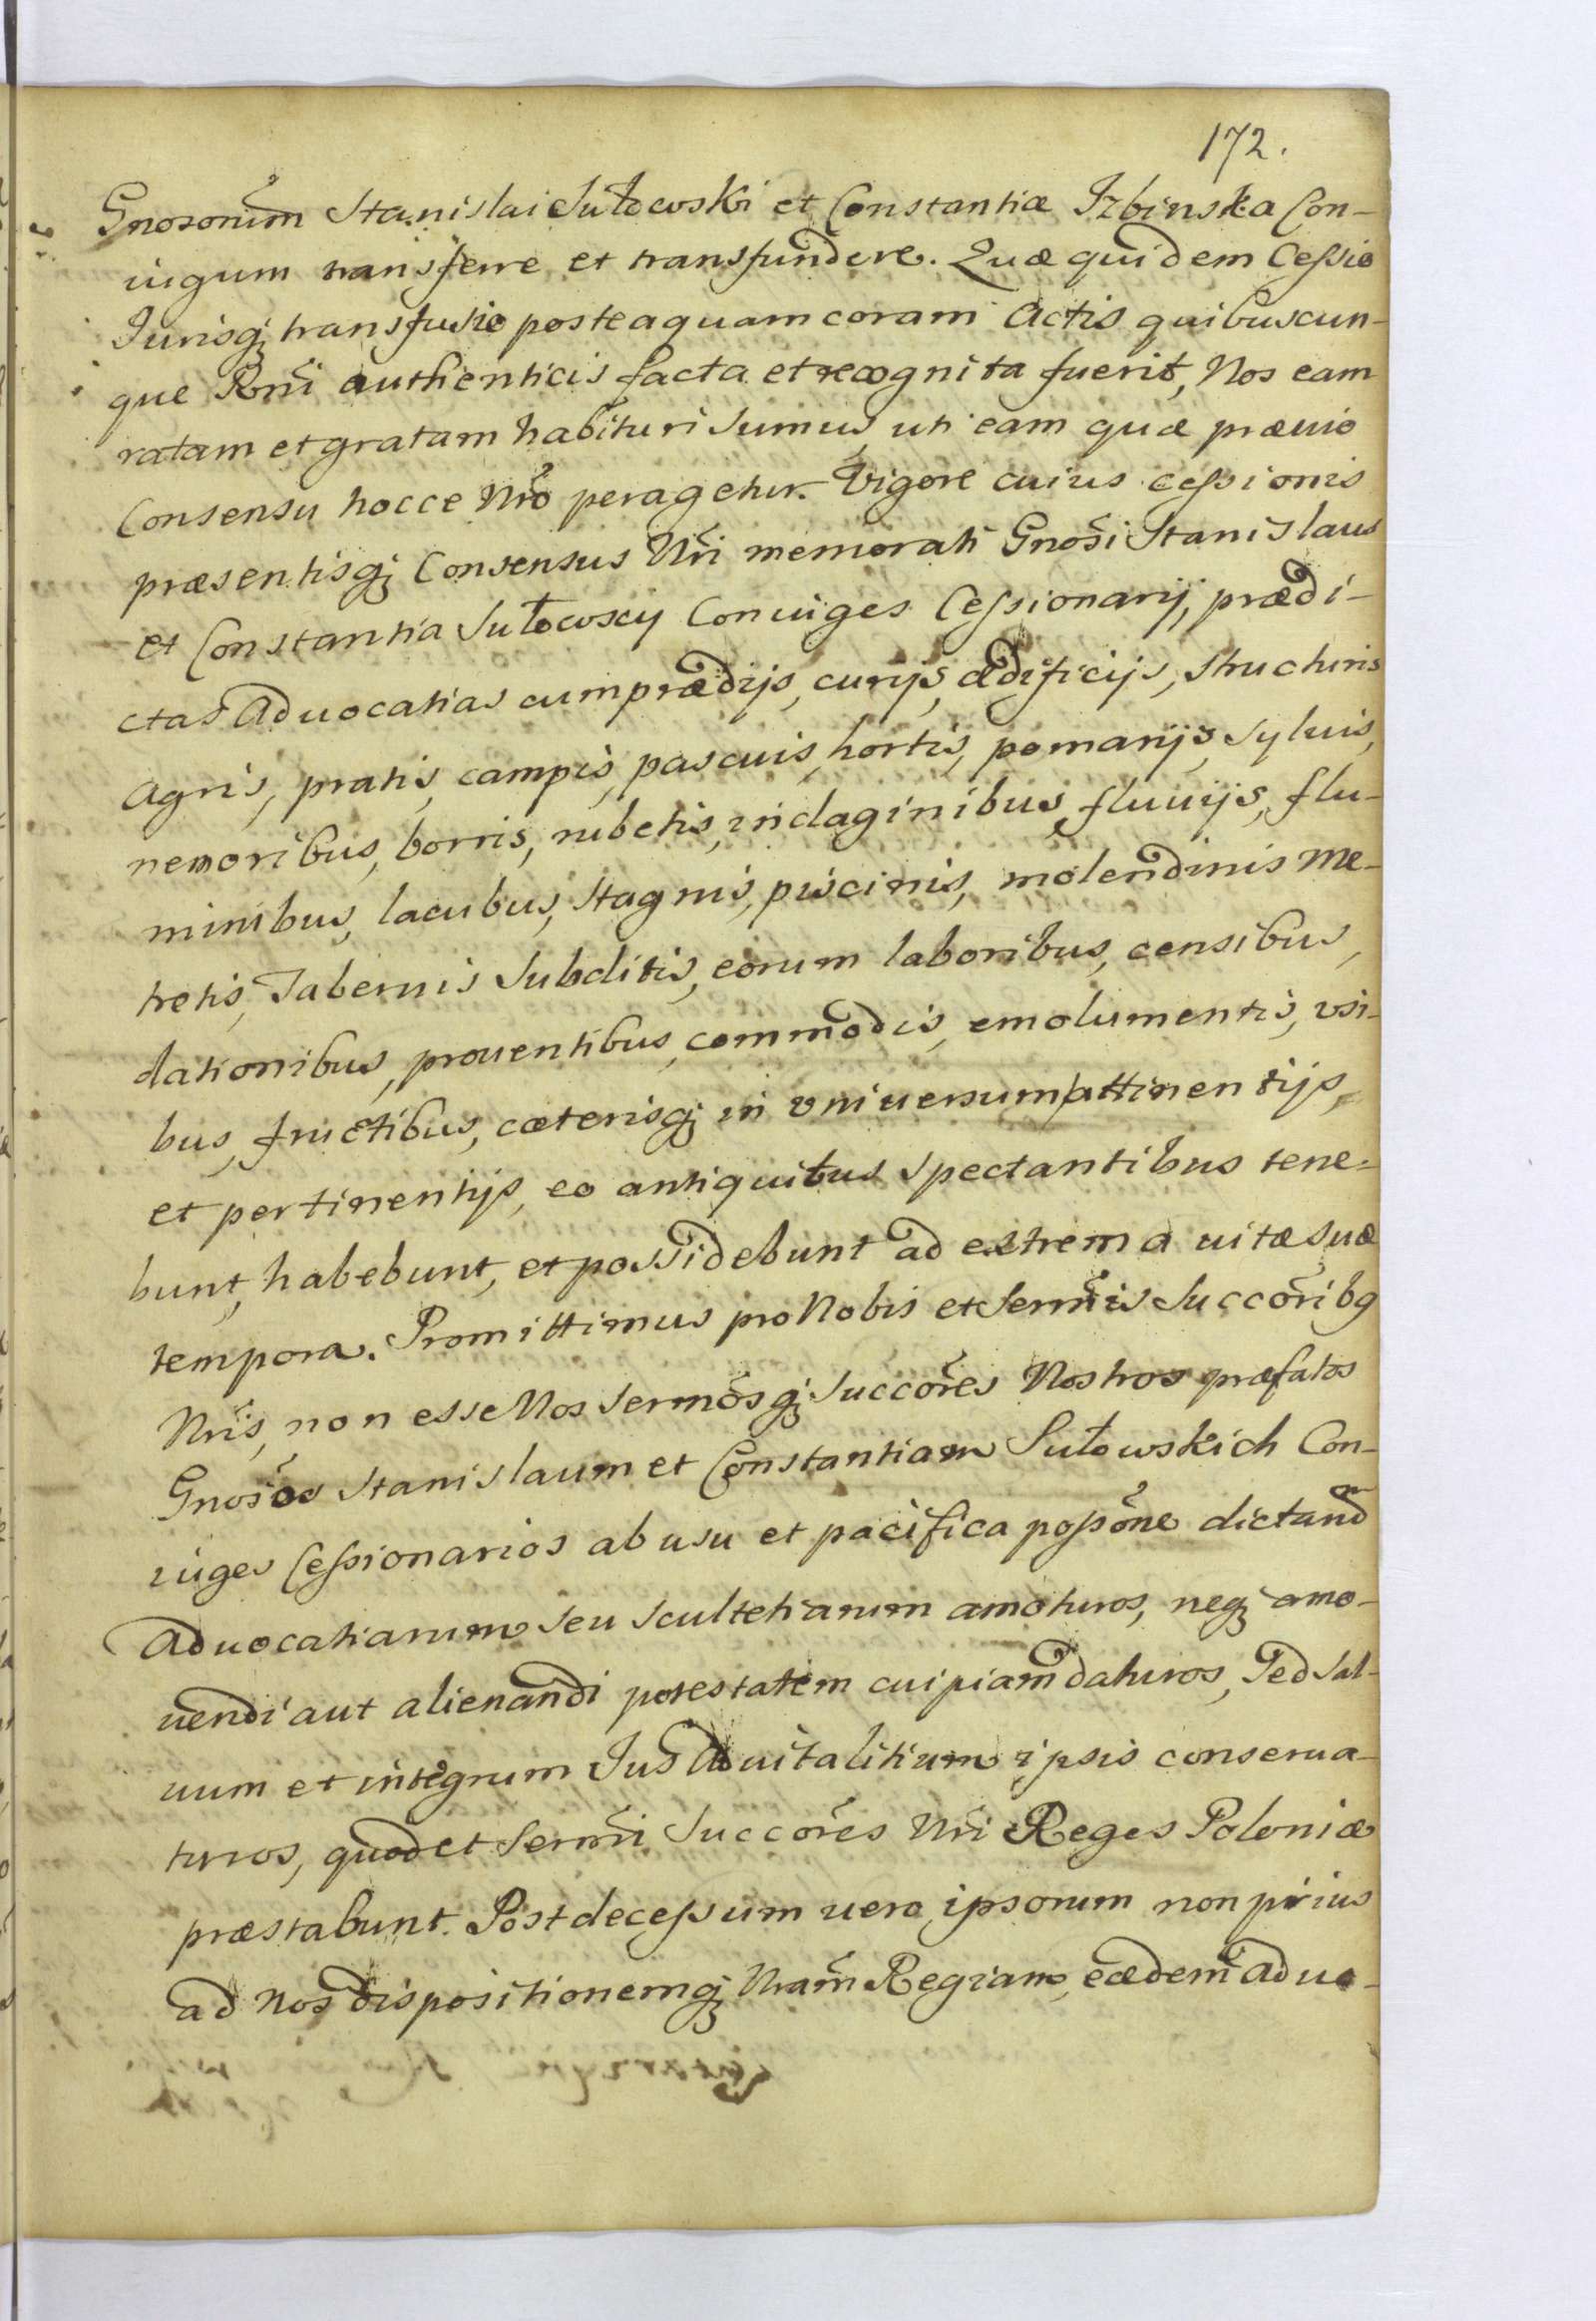 172.
Gnosorum̃ Stanislai Sułowski et Constantiæ Izbinska Con-
iugum transferre et transfundere. Quæ quidem Cessio
Jurisq; transfusio posteaquam coram Actis quibuscun-
que Rñi authenticis facta et recognita fuerit, Nos eam
ratam et gratam habituri sumus, uti eam quæ præuio
Consensu hocce Nr̃o peragetur. Vigore cuius cessionis
præsentisq; Consensus Nr̃i memorati Gnosĩ Stanislaus
et Constantia Sułowscy Coniuges Cessionarij, prædi-
ctas Aduocatias cum prædijs, curijs, ædificijs, structuris
agris, pratis, campis, pascuis, hortis, pomarijs, syluis,
nemoribus, borris, rubetis, indaginibus, fluuijs, flu-
minibus, lacubus, stagnis, piscinis, molendinis me-
tretis, Tabernis subditis, eorum laboribus, censibus,
dationibus, prouentibus, commodis, emolumentis, vsi-
bus, fructibus, cæterisq; in vniuersum attinentijs,
et pertinentijs, eo antiquitus spectantibus tene-
bunt, habebunt, et possidebunt ad extrema uitæ suæ
tempora. Promittimus pro Nobis et Serm̃is Succõribq
Nr̃is, non esse Nos Serm̃osq; Succõres Nostros præfatos
Gnosõs Stanislaum et Constantiam Sułowskich Con-
iuges Cessionarios ab usu et pacifica possõne dictand
Aduocatiarum seu Scultetiarum amoturos, neq; amo-
uendi aut alienandi potestatem cuipiam daturos, Sed sal-
uum et integrum Jus Aduitalitium ipsis conserua-
turos, quod et Serm̃i Succõres Nr̃i Reges Poloniæ
præstabunt. Post decessum uero ipsorum non prius
ad Nos dispositionemq; Nr̃am Regiam, eædem Aduo-